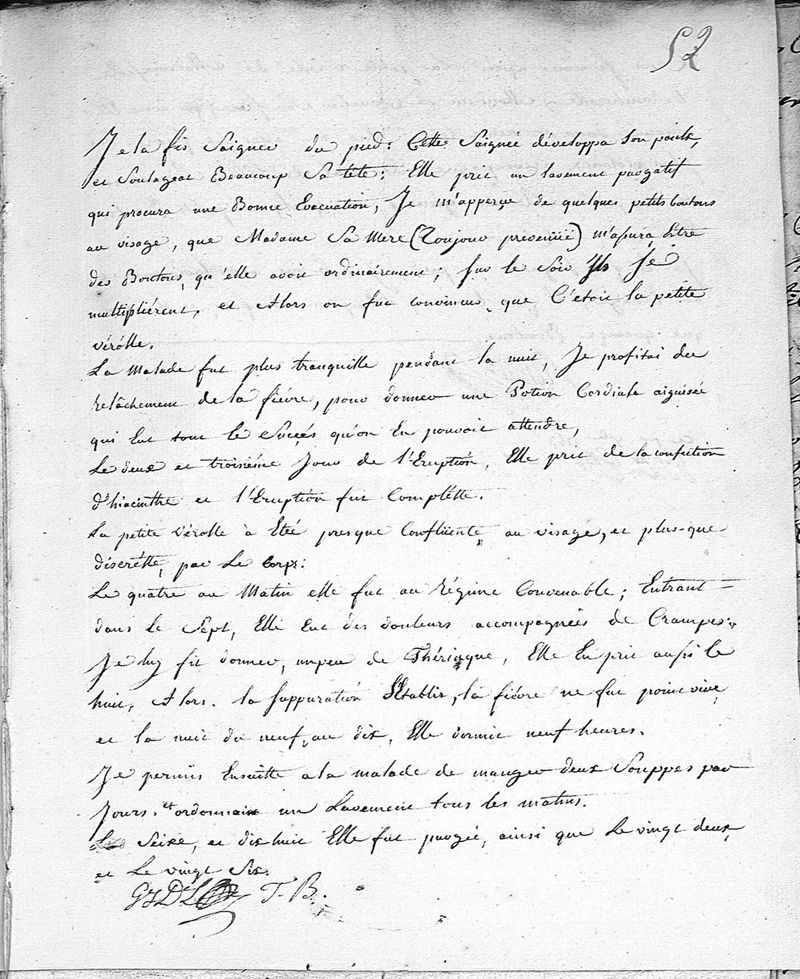 52
Je la fis Saigner du pied: Cette Saignée dévelopa Son pouls,
et Soulageat Beaucoup Sa tete: Elle prit un lavement purgatif
qui procura une Bonne Evacuation, Je m'apperçe de quelques petits boutons
au visage, que Madame Sa Mere (Toujour prevenüe) m'assura Etre
des Boutons, qu'elle avoit ordinairement; Sur le Soir Ils Sé
multipliérent, et Alors on fut convincus que C'étoit la petite
vérolle.
La Malade fut plus tranquille pendant la nuit, Je profitai du
relâchement de la fiévre, pour donner une Potion Cordiale aiguisée
qui Eut tout le Succés qu'on En pouvoit attendre,
Le deux et troisiéme Jour de l'Eruption, Elle prit de la confection
d'hiacinthe et l'Eruption fut Complétte.
La petite Vérolle à Eté presque Confluente au visage, et plus-que
discrétte, par Le Corps:
Le quatre au Matin elle fut au Régime Convenable; Entrant
dans Le Sept, Elle Eut des douleurs accompagnées de Crampes.
Je luy fit donner, un peu de Thériaque, Elle En prit aussi le
huit, Alors la Suppuration S'Etablit, la fiévre ne fut point vive
et la nuit du neuf, au dix, Elle dormit neuf heures.
Je permis Ensuitte a la malade de manger deux Souppes par
Jours. et ordonnais un Lavement tous les matins.
Le Seize, et dix huit Elle fut purgée, ainsi que Le vingt deux,
et Le vingt Six.
T. B.